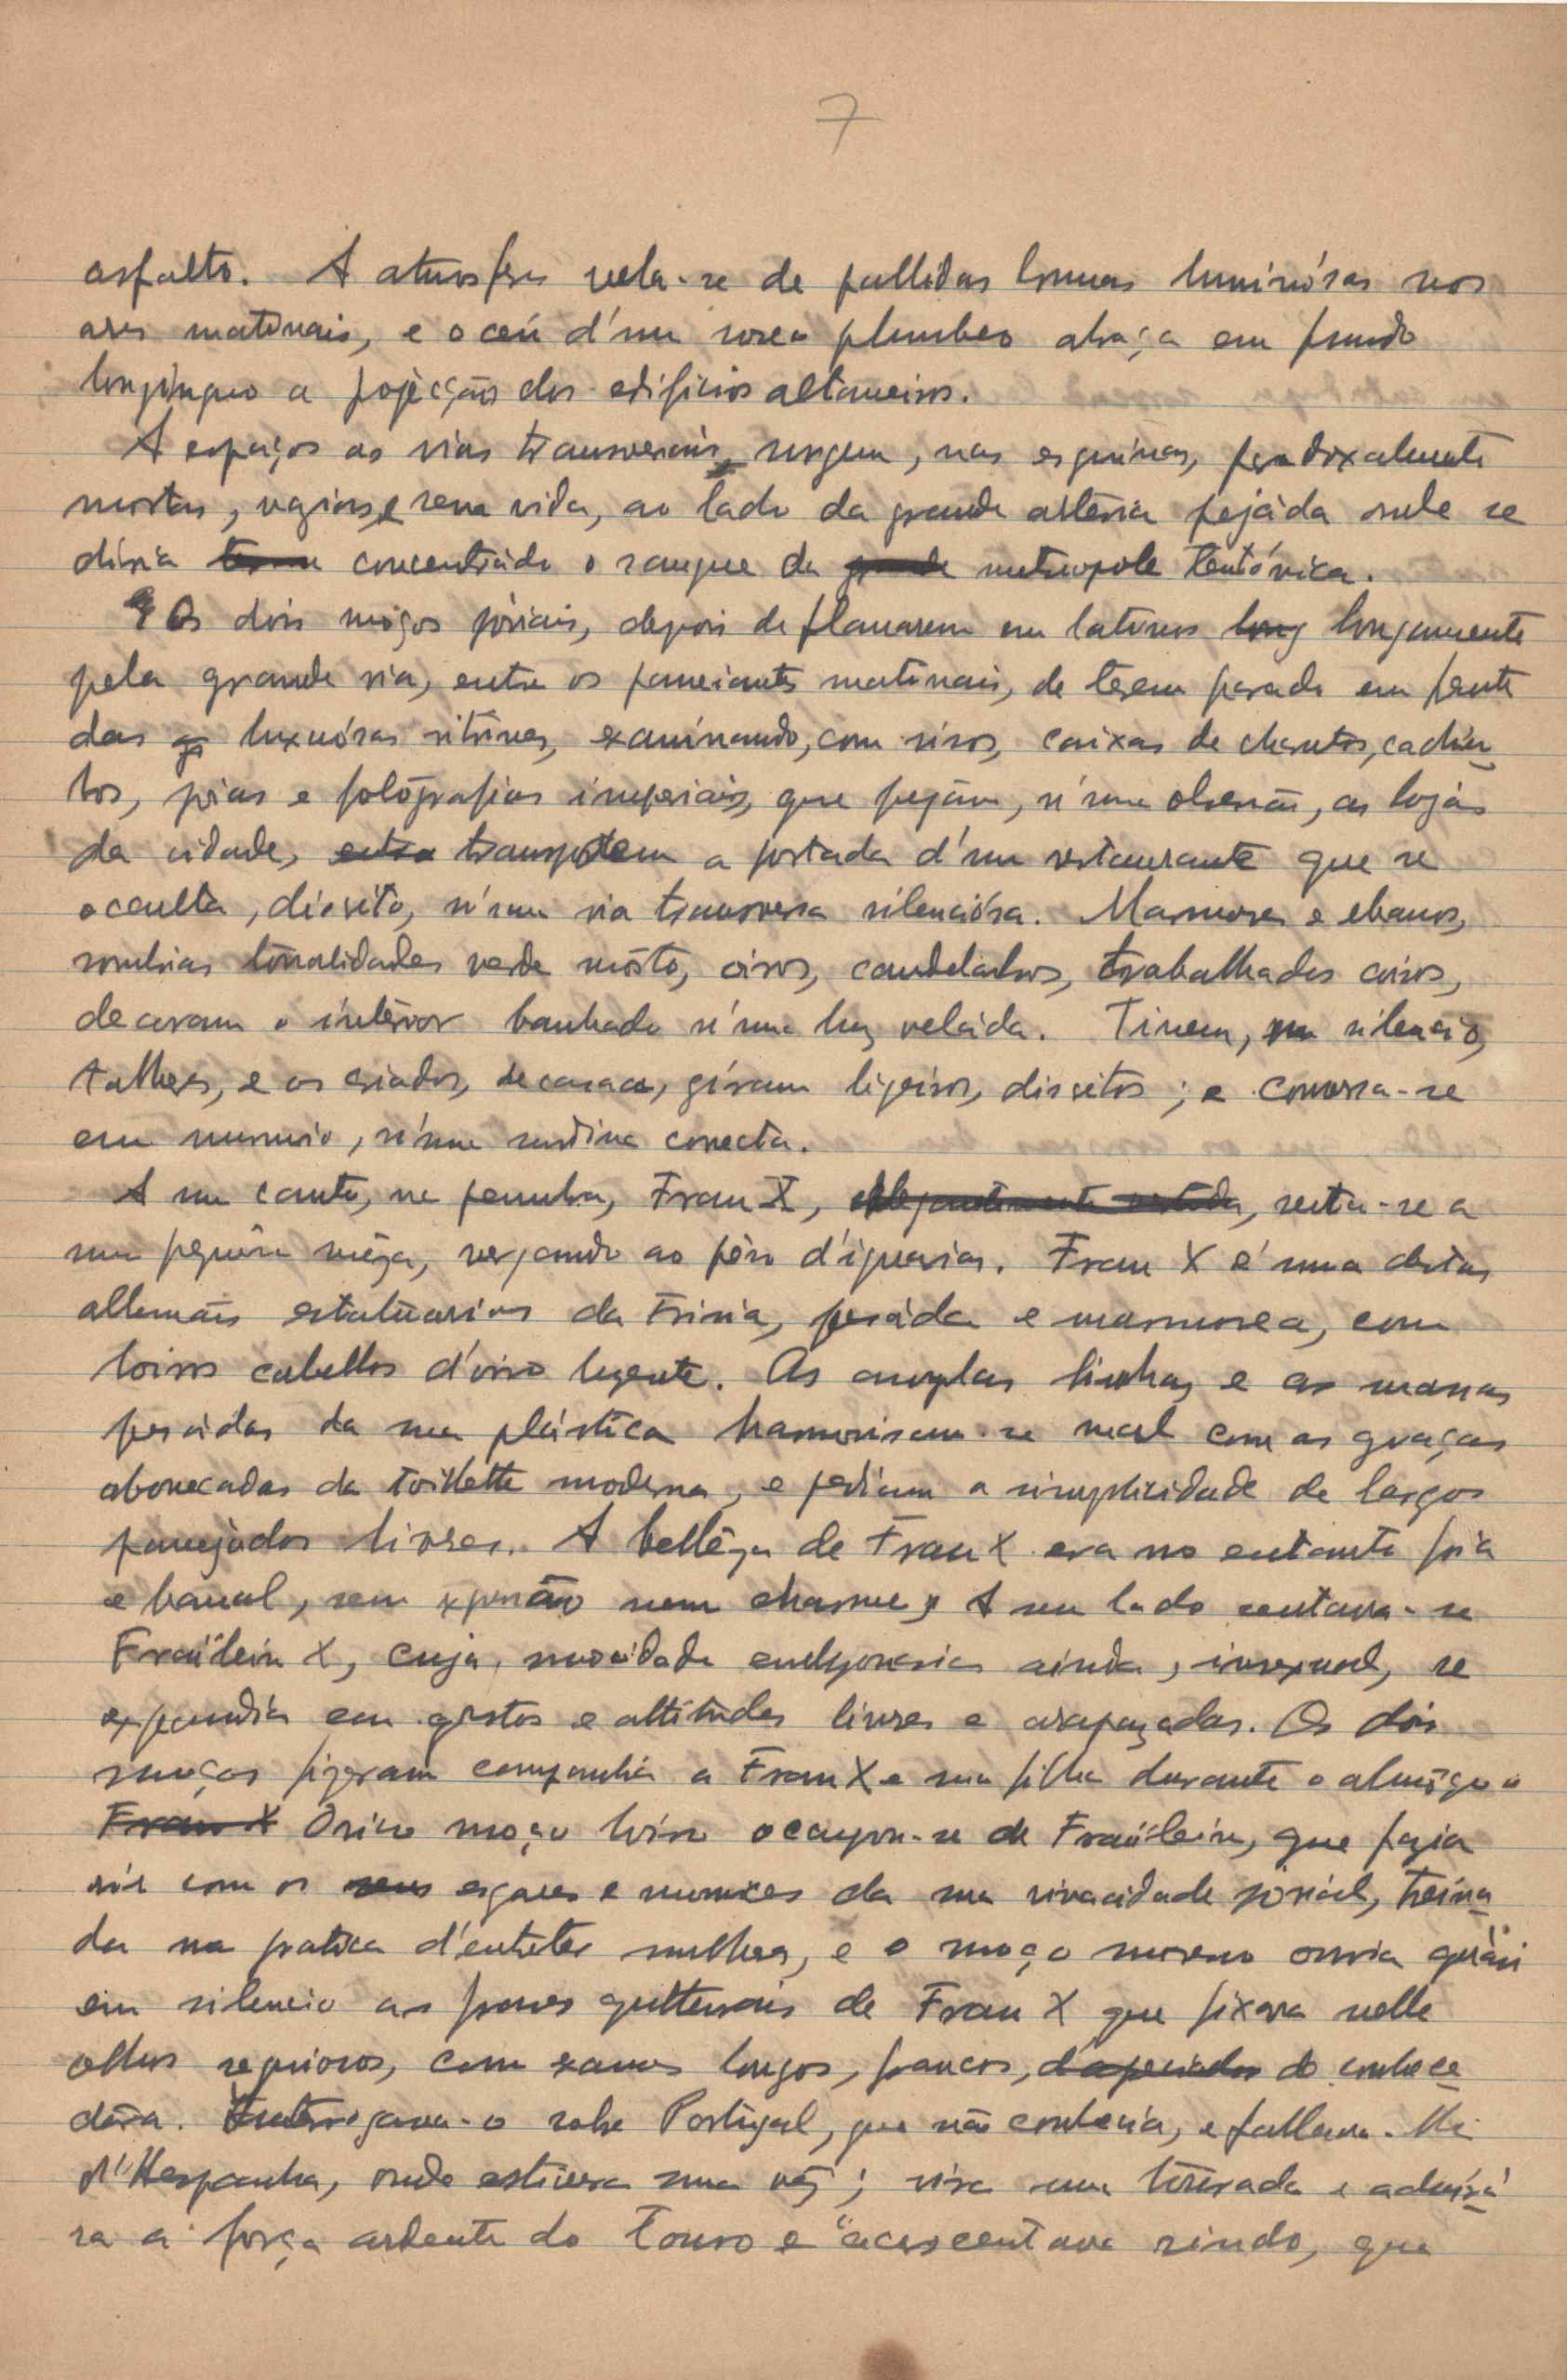 7
asfalto. A atmosfera vela-se de pallidas brumas luminósas nos
ares matinais, e o ceú d'um roseo plumbeo abraça em fundo
longinquo a pojecção dos edificios altaneiros.
A espaços as vias transversais, surgem, nas esquinas, paradoxalmente
mortas, vazias, e sem vida, ao lado da grande artéria pejáda onde se
diria concentrádo o sangue da grande metropole teutónica.
Os dois moços joviais, depois de flanarem em laturas long longamente
pela grande via, entre os passeiantes matinais, de terem parado em frente
das as luxuósas vitrines, examinando, com risos, caixas de charutos, cachim
bos, joias e fotógrafias imperiais, que pejám, n'uma obsessão, as lojas
da cidade, entra transpõem a portada d'um restaurante que se
occulta, discréto, n'uma via transversa silenciósa. Marmores e ebanos,
sombrias tonalidades verde mósto, oiros, candelabros, trabalhados coiros,
decoram o intérior banhado n'uma luz veláda. Tinem, em silencio,
talheres, e os criados, de casaca, gíram ligeiros, discretos; e conversa-se
em murmurio, n'uma surdina correcta.
A um canto, na penumbra, Frau X, elegantemente vestida, senta-se a
uma pequêna mêza, vergando ao pêso d'iguarias. Frau X é uma destas
allemãs estatuarias da Frisia, pesáda e marmorea, com
loiros cabellos d'oiro luzente. As amplas linhas e as massas
pesádas da sua plástica harmonisam-se mal com as graças
abonecadas da toillette moderna, e pediam a simplicidade de largos
panejádos livres. A bellêza de Frau X era no entanto fria
e banal, sem expressão nem charme, A seu lado sentava-se
Fraülein X, cuja, mocidade embryonaria ainda, insexual, se
expandia em gestos e attitudes livres e arapazadas. Os dois
moços fizeram companhia a Frau X e sua filha durante o almôço.
Frau X O rico moço loiro occupou-se de Fraülein, que fazia
rir com os seus esgares e momices da sua vivacidade joviál, treina
da na pratica d'entreter mulheres, e o moço moreno ouvia quási
em silencio as frases gutturais de Frau X que fixava nelle
olhos sequiosos, com exames longos, francos, de conhece
dôra. Interrogava-o sobre Portugal, que não conhecia, e fallava-lhe
d'Hespanha, onde estivera uma vêz; vira uma tôurada e admirá
ra a força ardente do Touro e "acrescentava rindo, que